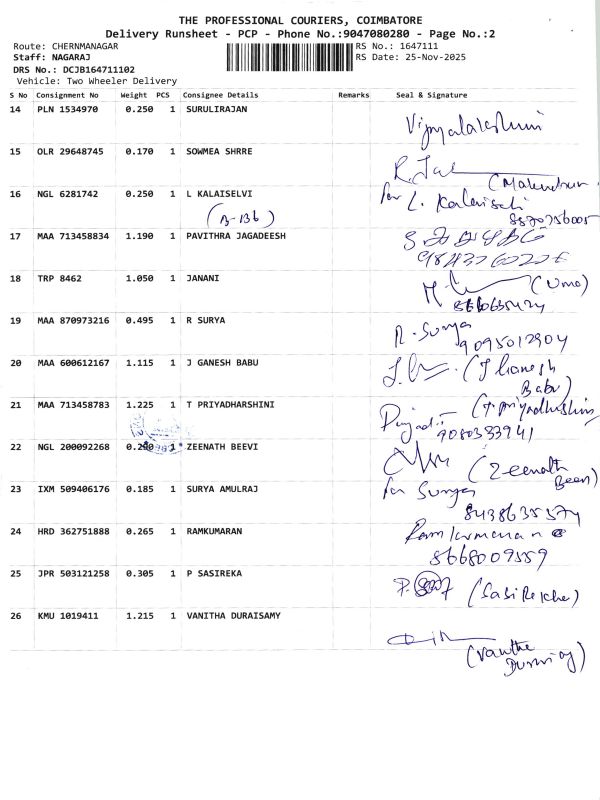 THE PROFESSIONAL COURIERS, COIMBATORE
Delivery Runsheet - PCP - Phone No.:9047080280 - Page No.:2
Route: CHERNMANAGAR
RS No.: 1647111
Staff: NAGARAJ
RS Date: 25-Nov-2025
DRS No.: DCJB164711102
Vehicle: Two Wheeler Delivery
S No Consignment No Weight PCS Consignee Details Remarks Seal & Signature
14 PLN 1534970 0.250 1 SURULIRAJAN
Vijayalakshmi
15 OLR 29648745 0.170 1 SOWMEA SHRRE
16 NGL 6281742 0.250 1 L KALAISELVI
for L. Kalaiselvi
(B-136)
17 MAA 713458834 1.190 1 PAVITHRA JAGADEESH
18 TRP 8462 1.050 1 JANANI
(Uma)
19 MAA 870973216 0.495 1 R SURYA
R. Surya
9095012904
20 MAA 600612167 1.115 1 J GANESH BABU
(J Ganesh
Babu)
21 MAA 713458783 1.225 1 T PRIYADHARSHINI
(T. Priyadharshini)
9080333941
22 NGL 200092268 1 ZEENATH BEEVI
(Zeenath
Beevi)
23 IXM 509406176 0.185 1 SURYA AMULRAJ
for Surya
8438635574
24 HRD 362751888 0.265 1 RAMKUMARAN
Ramkumaran
8668009559
25 JPR 503121258 0.305 1 P SASIREKA
(Sasirekha)
26 KMU 1019411 1.215 1 VANITHA DURAISAMY